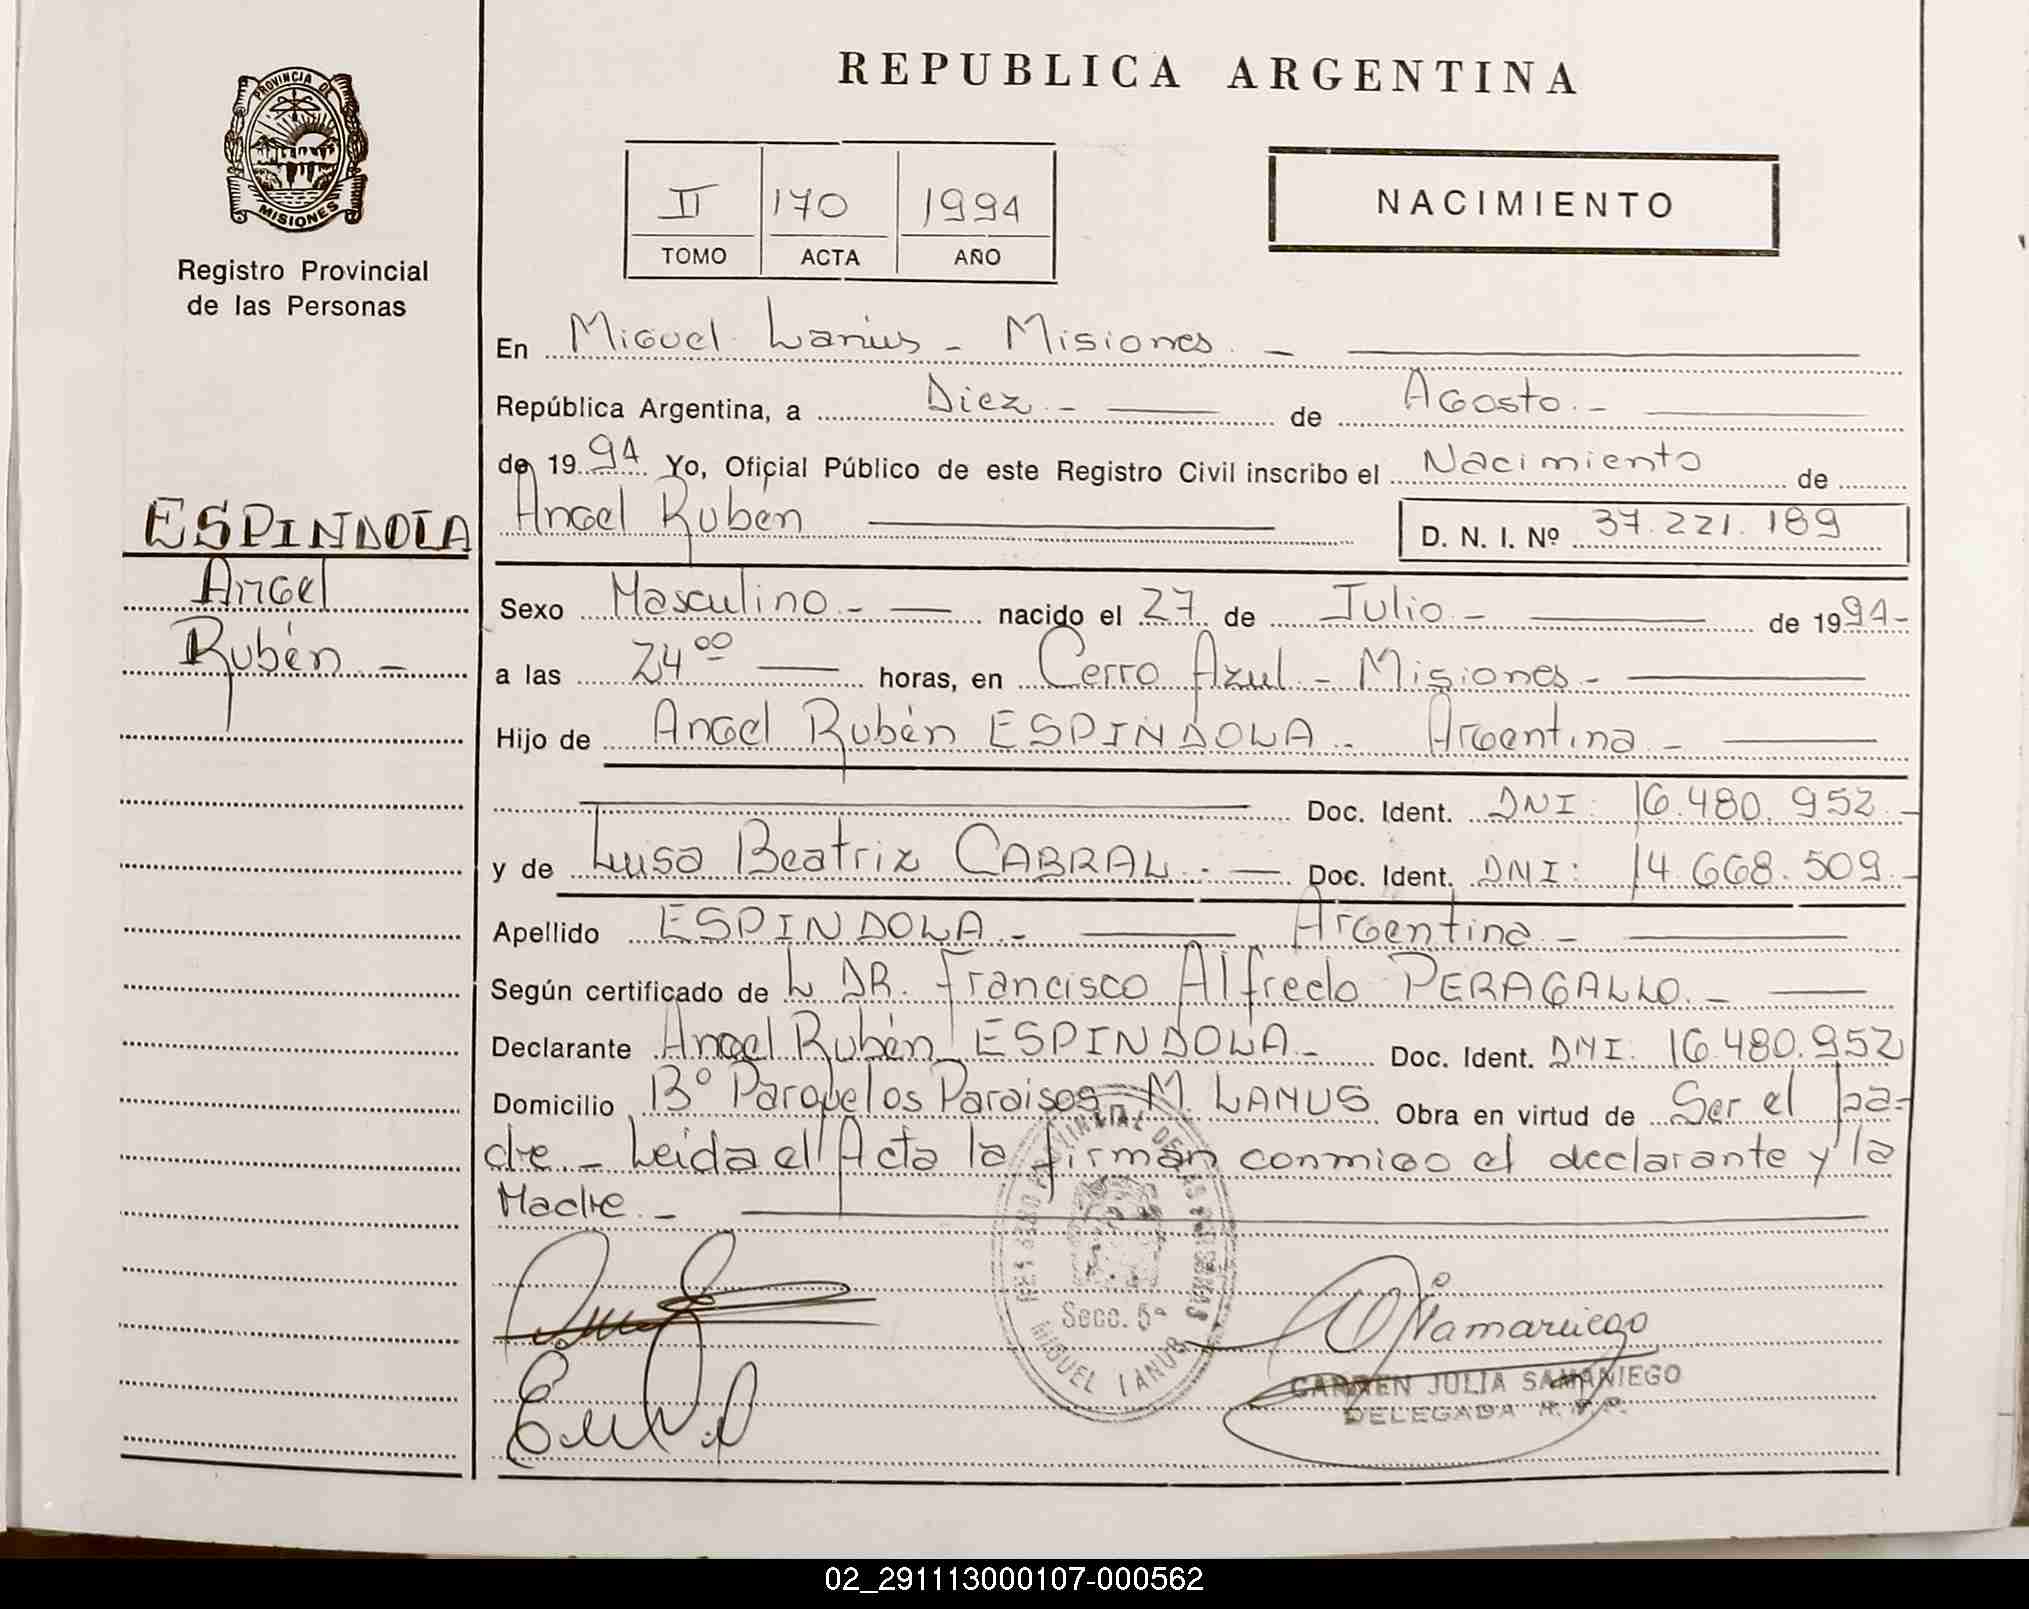 PROVINCIA DE
MISIONES
Registro Provincial
de las Personas
REPUBLICA ARGENTINA
II 170 1994
TOMO ACTA AÑO
NACIMIENTO
En Miguel Lanus - Misiones. -
República Argentina, a Diez - de Agosto. -
de 1994 Yo, Oficial Público de este Registro Civil inscribo el Nacimiento de
ESPINDOLA
Angel
Rubén. -
Angel Ruben D. N. I. Nº 37.221.189
Sexo Masculino. - nacido el 27 de Julio. - de 1994-
a las 24 00 horas, en Cerro Azul. - Misiones. -
Hijo de Angel Rubén ESPINDOLA. - Argentina. -
Doc. Ident. DNI: 16.480.952. -
y de Luisa Beatriz CABRAL. - Doc. Ident. DNI: 14.668.509. -
Apellido ESPINDOLA. - Argentina. -
Según certificado de L DR. Francisco Alfredo PERAGALLO. -
Declarante Angel Rubén ESPINDOLA. - Doc. Ident. DNI: 16.480.952
Domicilio Bº Parque los Paraisos M. LANUS Obra en virtud de Ser el pa-
dre - Leida el Acta la firman conmigo el declarante y la
Madre. -
Secc. 5ª
MIGUEL LANUS
Samaniego
CARMEN JULIA SAMANIEGO
DELEGADA R. P. P.
02_291113000107-000562